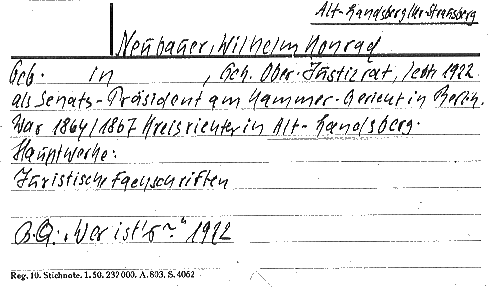 Alt-Landsberg/Kr. Strausberg
Neubauer, Wilhelm Konrad
Geb. in , Geh. Ober-Justizrat, lebte 1922
als Senats-Präsident am Kammer-Gericht in Berlin.
War 1864/1867 Kreisrichter in Alt-Landsberg.
Hauptwerke:
Juristische Fachschriften
B.Q.: „Wer ist's?“ 1922
Reg. 10. Stichnote. 1. 50. 232000. A. 803. S. 4062